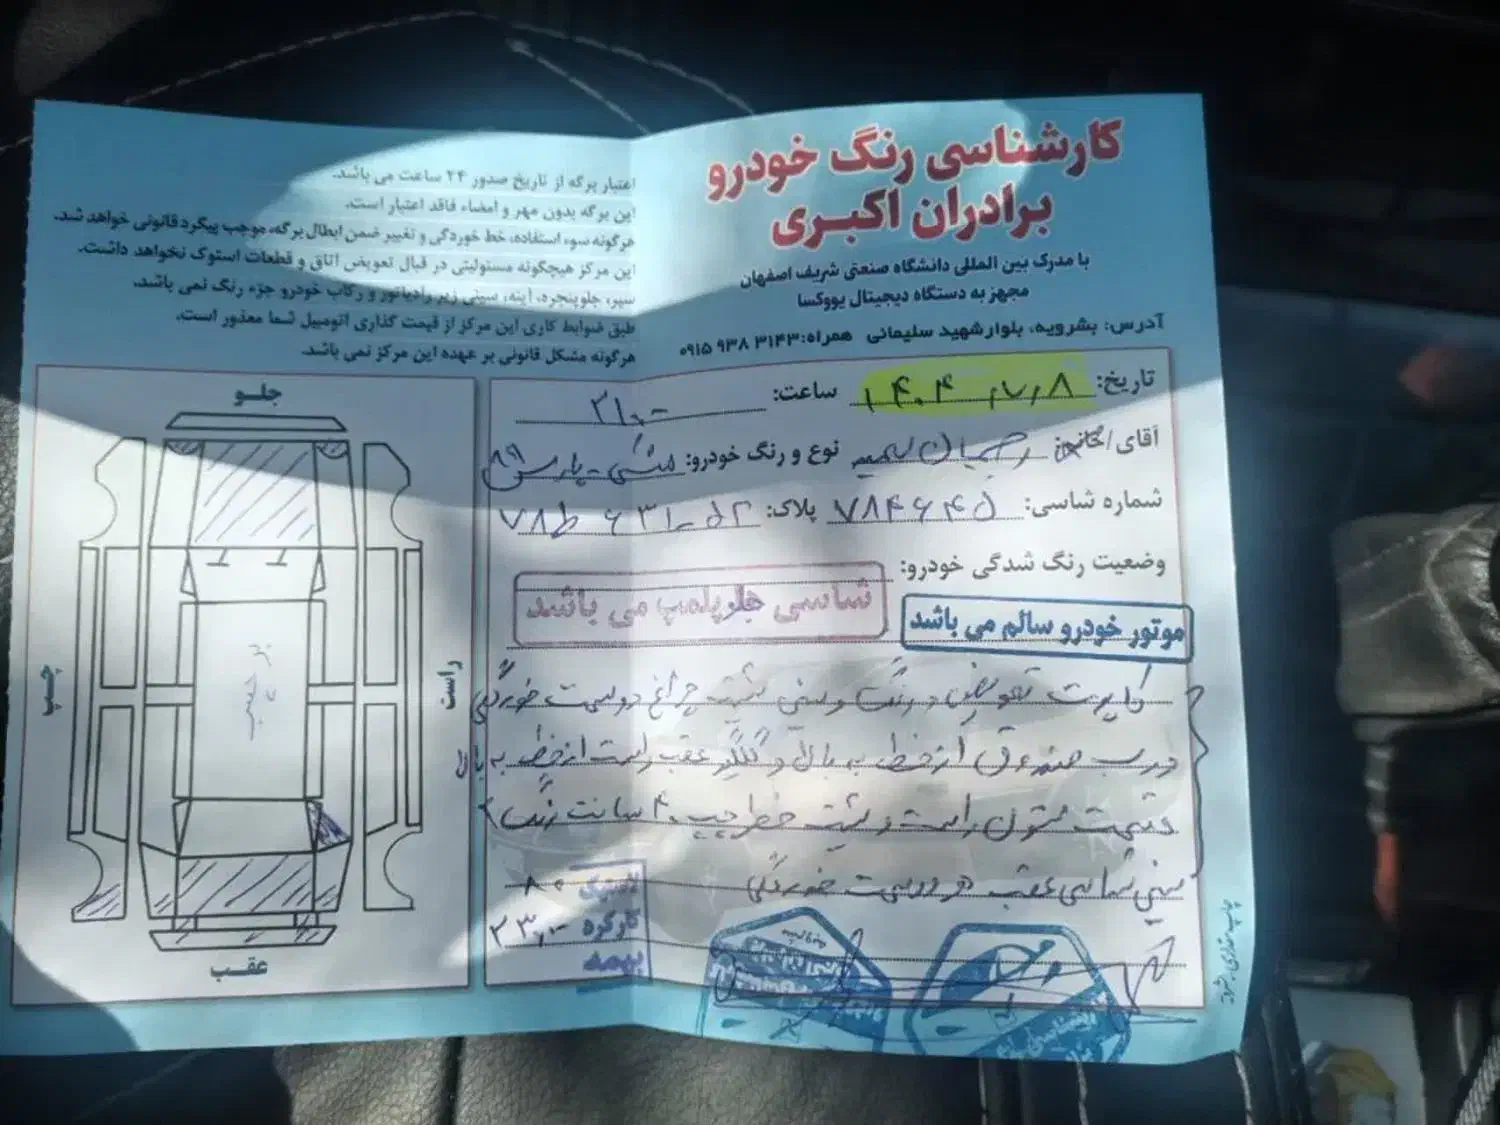 کارشناسی رنگ خودرو
برادران اکبری
با مدرک بین المللی دانشگاه صنعتی شریف اصفهان
مجهز به دستگاه دیجیتال یووکسا
آدرس: بشرویه، بلوار شهید سلیمانی همراه: ۰۹۱۵ ۹۳۸ ۳۱۴۳
اعتبار برگه از تاریخ صدور ۲۴ ساعت می باشد.
این برگه بدون مهر و امضاء فاقد اعتبار است.
هرگونه سوء استفاده، خط خوردگی و تغییر ضمن ابطال برگه، موجب پیگرد قانونی خواهد شد.
این مرکز هیچگونه مسئولیتی در قبال تعویض اتاق و قطعات استوک نخواهد داشت.
سپر، جلوپنجره، آینه، سینی زیر رادیاتور و رکاب خودرو جزء رنگ نمی باشد.
طبق ضوابط کاری این مرکز از قیمت گذاری اتومبیل شما معذور است.
هرگونه مشکل قانونی بر عهده این مرکز نمی باشد.
تاریخ: ۱۴۰۴/۷/۸ ساعت: ۲۱:۰۰
آقای/خانم: نوع و رنگ خودرو: مشکی - پارس ۸۹
شماره شاسی: ۷۸۴۶۴۵ پلاک: ۵۲-۶۳۱ ط ۷۸
وضعیت رنگ شدگی خودرو:
شاسی جلو پلمپ می باشد
موتور خودرو سالم می باشد
کاپوت تعویض و رنگ و سینی پشت چراغ دو سمت خوردگی
درب صندوق از خط به بالا و گلگیر عقب راست از خط به بالا
قسمت ستون راست و پشت خطر چپ ۴ سانت رنگ
سینی شاسی عقب دو سمت خوردگی
لاستیک ۸۰
کارکرد ۲۳۰۰۰۰
بیمه
جلو
چپ
راست
برچسب
عقب